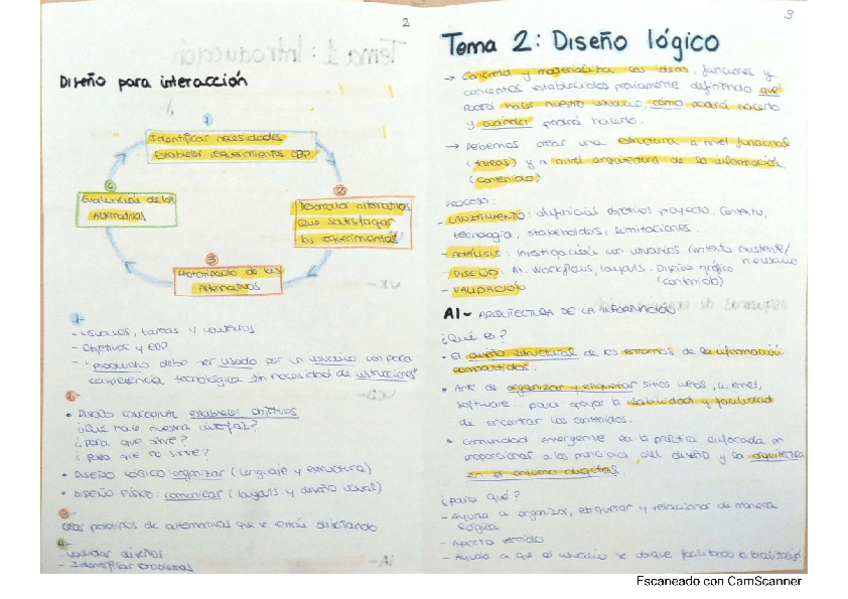 2
Diseño para interacción
1
Identificar necesidades
Establecer requerimientos
2
Desarrollar alternativas
Que satisfagan
los requerimientos
3
Prototipado de las
Alternativas
4
Evaluación de las
Alternativas
1-
- Usuarios, tareas y contextos
- Objetivos y
- "producto debe ser usado por un usuario con poca
competencia tecnológica sin necesidad de instrucciones"
2-
• Diseño conceptual establecer objetivos
¿Qué hace nuestra interfaz?
¿para que sirve?
¿para que no sirve?
• DISEÑO LÓGICO: organizar (lenguaje y estructura)
• DISEÑO FÍSICO: comunicar (layouts y diseño visual)
3-
Crear prototipos de alternativas que se están diseñando.
4-
- Validar diseños
- Identificar problemas
3
Tema 2: Diseño lógico
→ Concreta y materializa las ideas, funciones y
conceptos establecidos previamente definiendo qué
podrá hacer nuestro usuario, cómo podrá hacerlo
y cuándo podrá hacerlo.
→ Debemos crear una estructura a nivel funcional
(tareas) y a nivel arquitectura de la información
(contenido)
PROCESO:
- LANZAMIENTO: objetivos proyecto. Contexto,
tecnología, stakeholders, limitaciones.
- ANÁLISIS: Investigación con usuarios contexto existente/
necesario
- DISEÑO: AI. Workflows, layouts. Diseño gráfico
(contenido)
- VALIDACIÓN
AI- ARQUITECTURA DE LA INFORMACIÓN
¿Qué es?
• El diseño estructural de los entornos de la información
compartidos.
• Arte de organizar y etiquetar sitios webs,
software para apoyar la usabilidad y facilidad
de encontrar los contenidos.
• Comunidad emergente en la práctica enfocada en
proporcionar a los principios del diseño y la arquitectura
en el entorno digital
¿para qué?
- Ayuda a organizar, etiquetar y relacionar de manera
lógica
- Aporta sentido
- Ayuda a que el usuario se ubique facilitando la localización
Escaneado con CamScanner